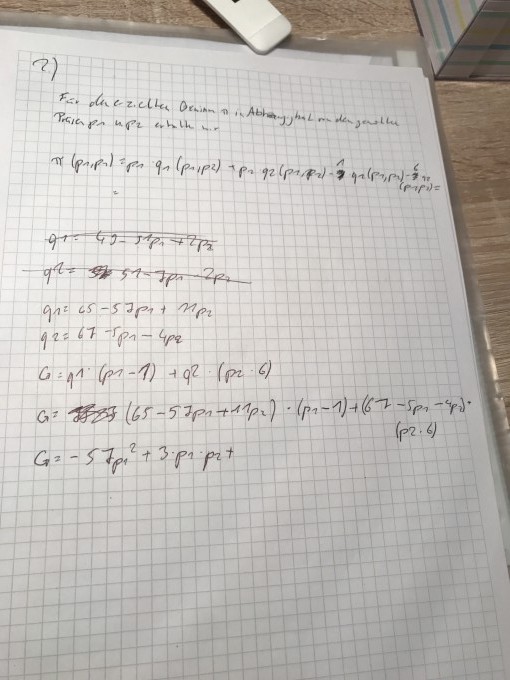 2)
Für den erzielten Gewinn π in Abhängigkeit von den gewählten
Preisen p1 u p2 erhalte wir
π (p1,p2) = p1 q1 (p1,p2) + p2 q2 (p1,p2) - 1 q1 (p1,p2) - 6
(p1,p2) =
=
q1 = 49 - 51p1 + 2p2
q2 = 51 - 7p1 - 2p2
q1 = 65 - 57p1 + 11p2
q2 = 67 - 5p1 - 4p2
G = q1 · (p1 - 1) + q2 · (p2 · 6)
G = (65 - 57p1 + 11p2) · (p1 - 1) + (67 - 5p1 - 4p2) ·
(p2 · 6)
G = - 57p1² + 3 · p1 · p2 +